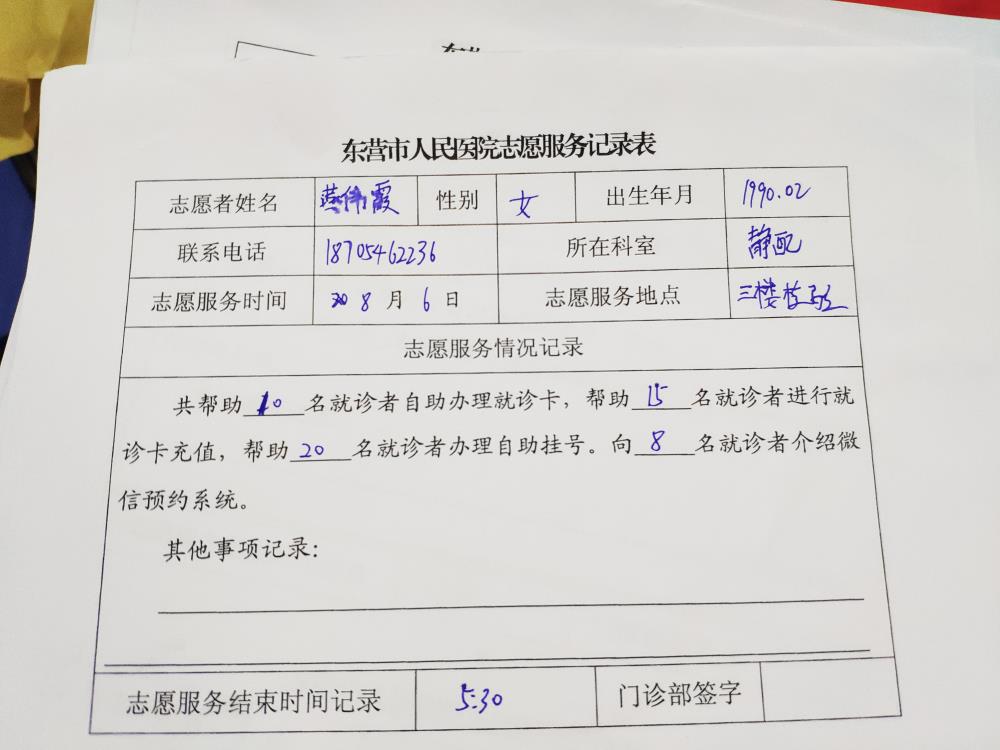 东营市人民医院志愿服务记录表
志愿者姓名 燕伟霞 性别 女 出生年月 1990.02
联系电话 18705462236 所在科室 静配
志愿服务时间 8月6日 志愿服务地点 三楼
志愿服务情况记录
共帮助10名就诊者自助办理就诊卡，帮助15名就诊者进行就
诊卡充值，帮助20名就诊者办理自助挂号。向8名就诊者介绍微
信预约系统。
其他事项记录：
志愿服务结束时间记录 5:30 门诊部签字